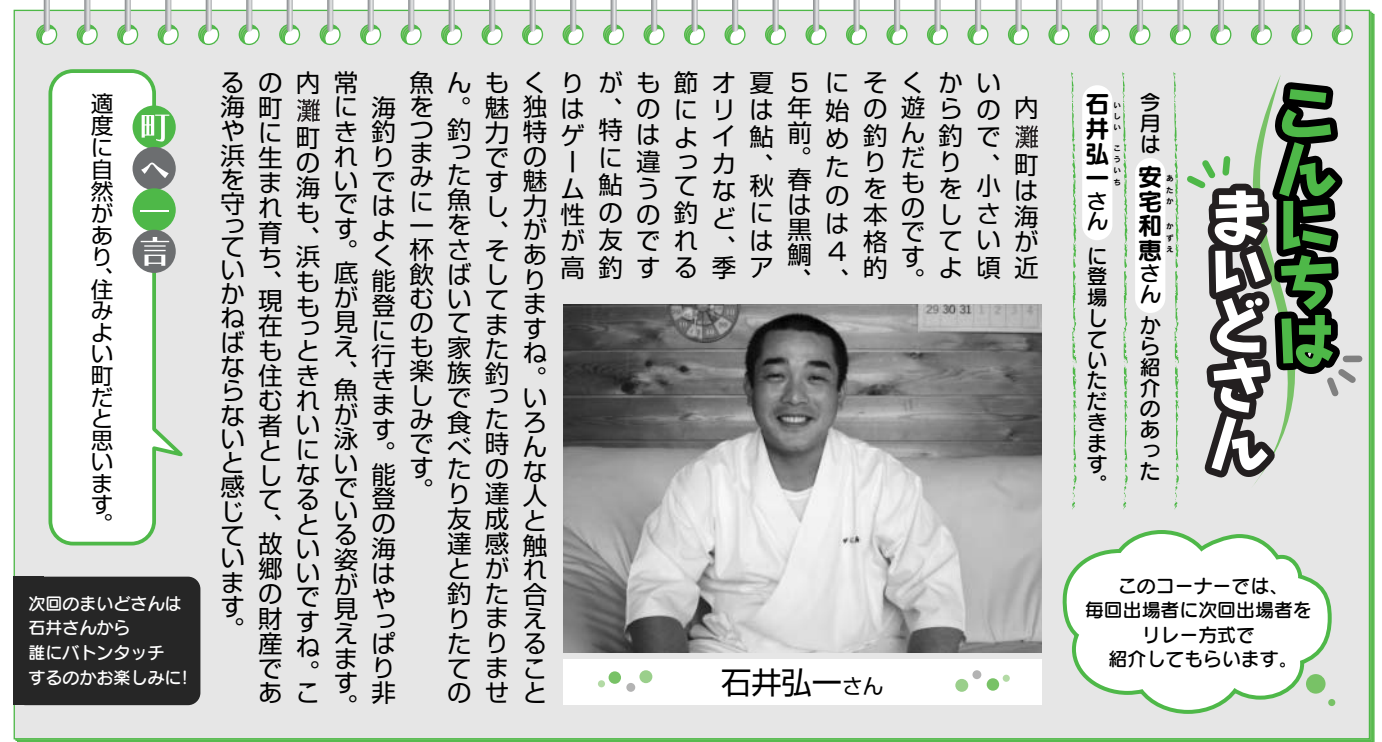 こんにちは
まいどさん
今月は 安宅和恵さん から紹介のあった
あたか かずえ
石井弘一さん に登場していただきます。
いしい こういち
このコーナーでは、
毎回出場者に次回出場者を
リレー方式で
紹介してもらいます。
内灘町は海が近
いので、小さい頃
から釣りをしてよ
く遊んだものです。
その釣りを本格的
に始めたのは４、
５年前。春は黒鯛、
夏は鮎、秋にはア
オリイカなど、季
節によって釣れる
ものは違うのです
が、特に鮎の友釣
りはゲーム性が高
く独特の魅力がありますね。いろんな人と触れ合えること
も魅力ですし、そしてまた釣った時の達成感がたまりませ
ん。釣った魚をさばいて家族で食べたり友達と釣りたての
魚をつまみに一杯飲むのも楽しみです。
海釣りではよく能登に行きます。能登の海はやっぱり非
常にきれいです。底が見え、魚が泳いでいる姿が見えます。
内灘町の海も、浜ももっときれいになるといいですね。こ
の町に生まれ育ち、現在も住む者として、故郷の財産であ
る海や浜を守っていかねばならないと感じています。
29 30 31 1 2 3 4
石井弘一さん
町へ一言
適度に自然があり、住みよい町だと思います。
次回のまいどさんは
石井さんから
誰にバトンタッチ
するのかお楽しみに!